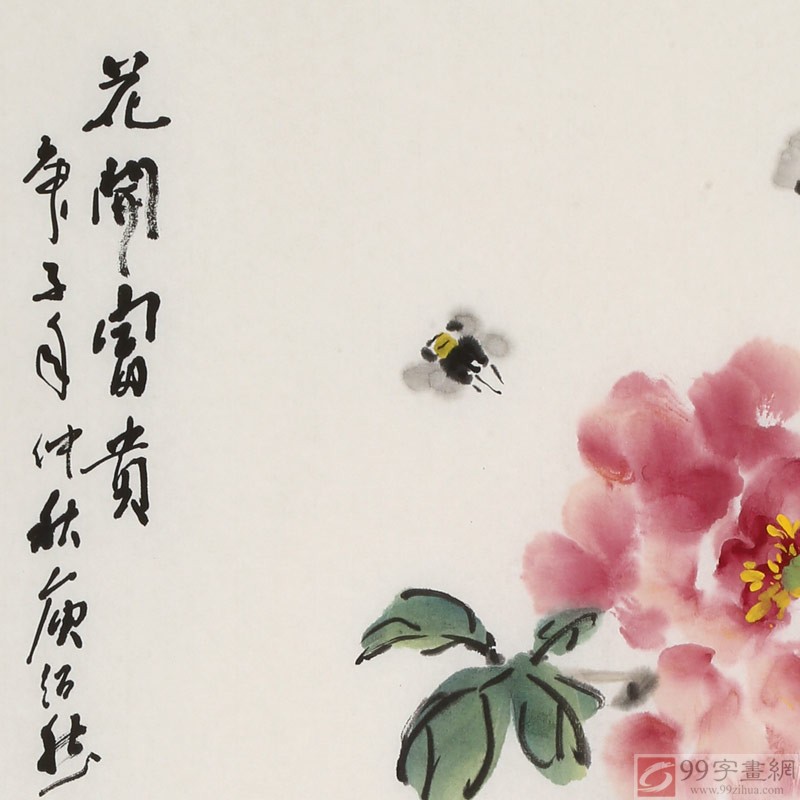 花開富貴
庚子年仲秋庾紹
99字畫網
www.99zihua.com